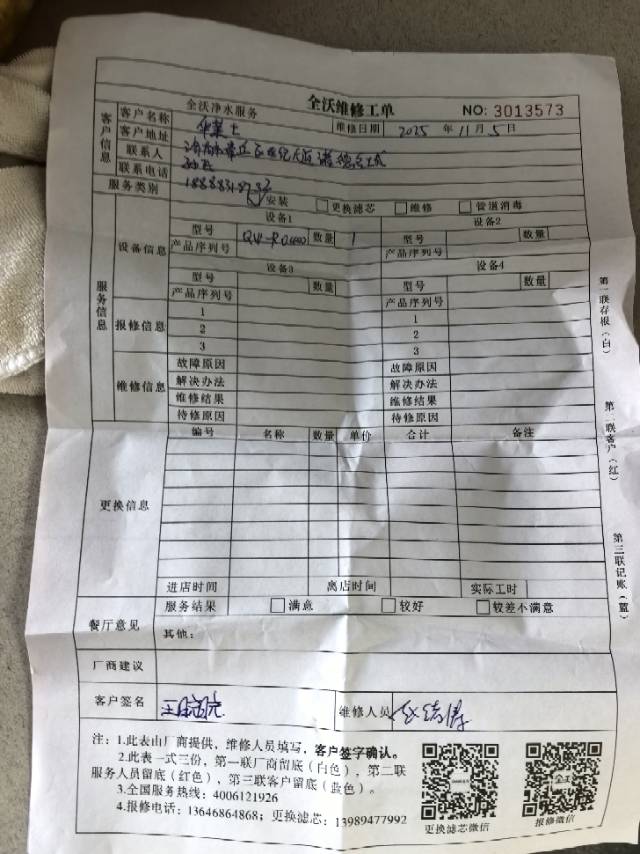 全沃净水服务 全沃维修工单 NO: 3013573
客户信息
客户名称 维修日期 2025 年 11 月 5 日
客户地址
联系人
联系电话
服务类别 安装 更换滤芯 维修 管道消毒
服务信息
设备信息 设备1 设备2
型号 数量 1 型号 数量
产品序列号 产品序列号
设备3 设备4
型号 数量 型号 数量
产品序列号 产品序列号
报修信息
1 1
2 2
3 3
维修信息
故障原因 故障原因
解决办法 解决办法
维修结果 维修结果
待修原因 待修原因
更换信息
编号 名称 数量 单价 合计 备注
进店时间 离店时间 实际工时
餐厅意见
服务结果 满意 较好 较差不满意
其他:
厂商建议
客户签名 维修人员
注: 1.此表由厂商提供,维修人员填写,客户签字确认。
2.此表一式三份,第一联厂商留底(白色),第二联
服务人员留底(红色),第三联客户留底(蓝色)。
3.全国服务热线: 4006121926
4.报修电话: 13646864868; 更换滤芯: 13989477992
更换滤芯微信 报修微信
第一联存根(白)
第二联客户(红)
第三联记账(蓝)